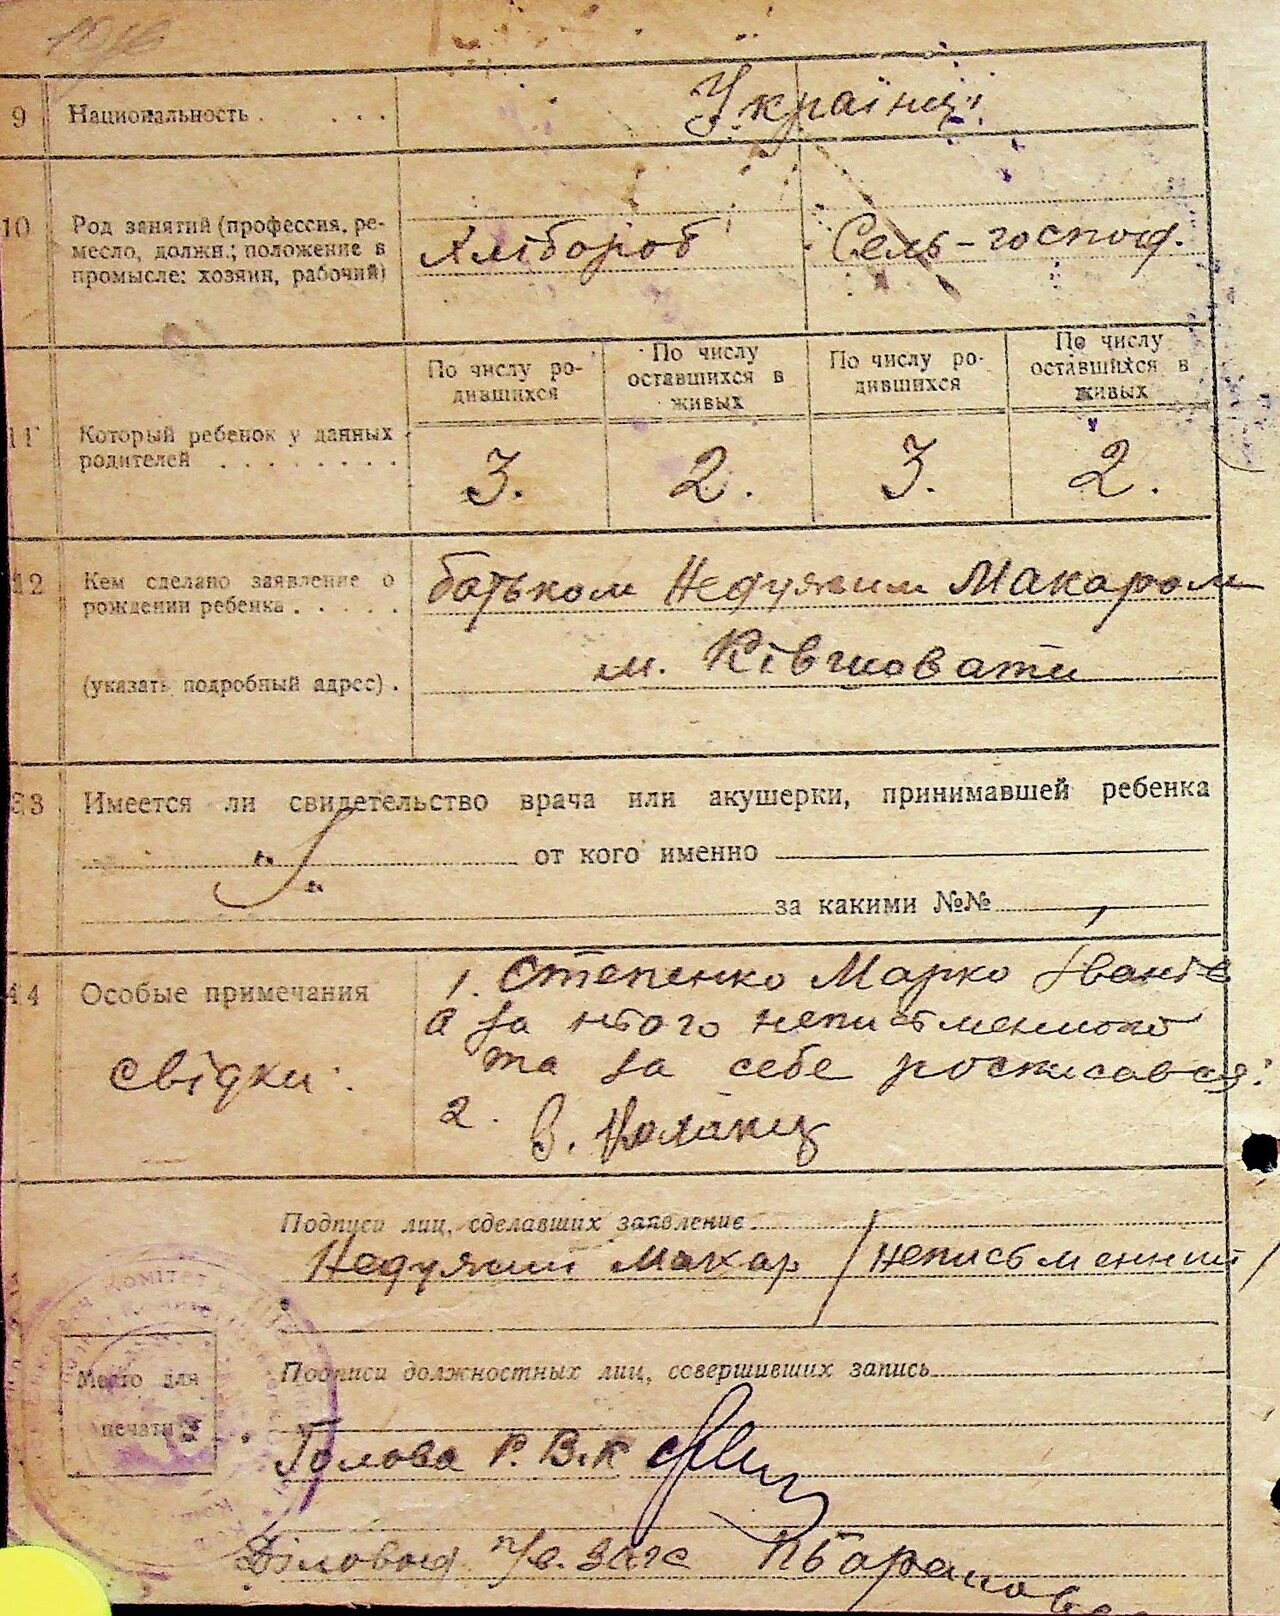 9 Национальность . . . . Українці
10 Род занятий (профессия, ре-
месло, должн.; положение в
промысле: хозяин, рабочий)
Хлібороб Сель-господ.
По числу ро-
дившихся
По числу
оставшихся в
живых
По числу ро-
дившихся
По числу
оставшихся в
живых
11 Который ребенок у данных
родителей . . . . . . . .
3. 2. 3. 2.
12 Кем сделано заявление о
рождении ребенка . . . . .
батьком Недужим Макаром
(указать подробный адрес) .
м. Ківшовати
13 Имеется ли свидетельство врача или акушерки, принимавшей ребенка
от кого именно
за какими №№
14 Особые примечания
свідки:
1. Степенко Марко Іванів
а за нього неписьменного
та за себе росписався:
2. В.
Подписи лиц, сделавших заявление
Недужий Макар /неписьменний/
Место для
печати
Подписи должностных лиц, совершивших запись
Голова Р.В.К
Діловод загс